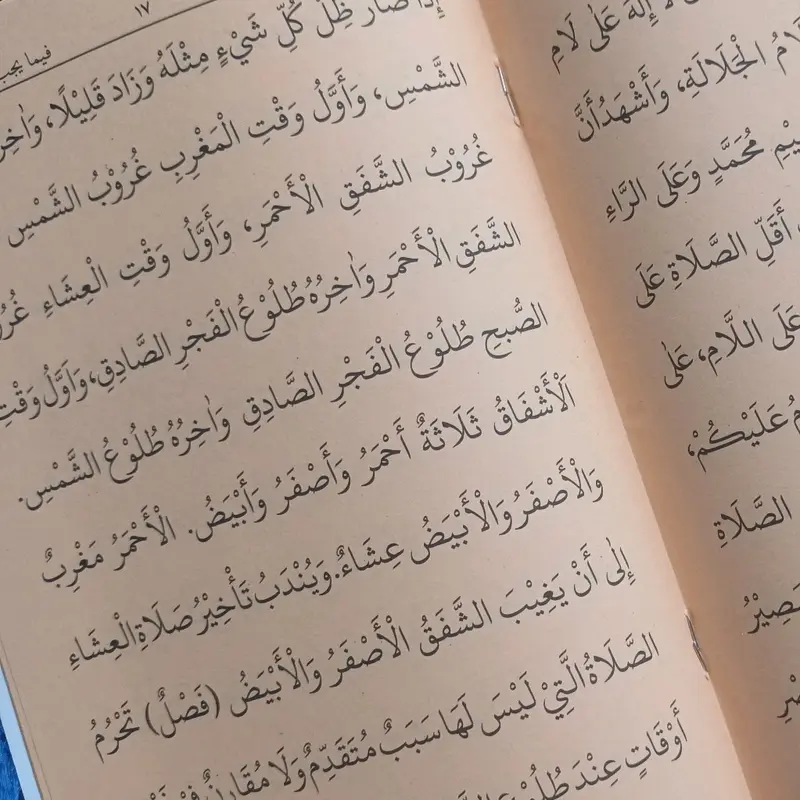 ١٧
فيما يجب
إِذَا صَارَ ظِلُّ كُلِّ شَيْءٍ مِثْلَهُ وَزَادَ قَلِيْلًا، وَاٰخِرُ
الشَّمْسِ، وَأَوَّلُ وَقْتِ الْمَغْرِبِ غُرُوْبُ الشَّمْسِ
غُرُوْبُ الشَّفَقِ الْأَحْمَرِ، وَأَوَّلُ وَقْتِ الْعِشَاءِ
الشَّفَقِ الْأَحْمَرِ وَاٰخِرُهُ طُلُوْعُ الْفَجْرِ الصَّادِقِ، وَأَوَّلُ وَقْتِ
الصُّبْحِ طُلُوْعُ الْفَجْرِ الصَّادِقِ وَاٰخِرُهُ طُلُوْعُ الشَّمْسِ.
اَلْأَشْفَاقُ ثَلَاثَةٌ أَحْمَرُ وَأَصْفَرُ وَأَبْيَضُ. الْأَحْمَرُ مَغْرِبٌ
وَالْأَصْفَرُ وَالْأَبْيَضُ عِشَاءٌ. وَيُنْدَبُ تَأْخِيْرُ صَلَاةِ الْعِشَاءِ
إِلٰى أَنْ يَغِيْبَ الشَّفَقُ الْأَصْفَرُ وَالْأَبْيَضُ (فَصْلٌ) تَحْرُمُ
الصَّلَاةُ الَّتِيْ لَيْسَ لَهَا سَبَبٌ مُتَقَدِّمٌ وَلَا مُقَارِنٌ
أَوْقَاتٍ عِنْدَ طُلُوْعِ
إِلٰهَ عَلٰى لَامِ
الْجَلَالَةِ، وَأَشْهَدُ أَنَّ
مُحَمَّدٍ وَعَلَى الرَّاءِ
أَقَلِّ الصَّلَاةِ عَلَى
عَلَى اللَّامِ، عَلٰى
عَلَيْكُمْ،
الصَّلَاةِ